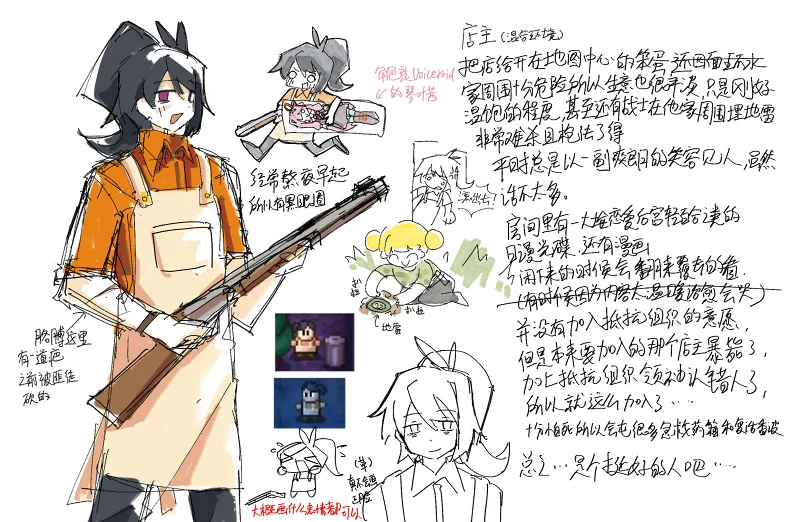 店主(混合环境)
把店给开在地图中心的笨蛋,还四面环水
家周围十分危险所以生意也很惨淡,只是刚好
温饱的程度,甚至还有战士在他家周围埋地雷
非常难杀且枪法了得
平时总是以一副爽朗的笑容见人,虽然
话不太多。
房间里有一大堆恋爱后宫轻百合之类的
日漫光碟,还有漫画,
闲下来的时候会翻来覆去的看
(有时候因为内容太温暖治愈会哭)
并没有加入抵抗组织的意愿,
但是本来要加入的那个店主暴毙了,
加上抵抗组织领袖认错人了,
所以就这么加入了……
十分怕死所以会屯很多急救药箱和复活
总之…是个挺好的人吧……
角色是Voiceroid
的琴叶茜
经常熬夜早起
所以有黑眼圈
滚出去!
扒拉
扒拉
地雷
胳膊这里
有一道疤
之前被匪徒
砍的
(第)
大概画什么表情都可以